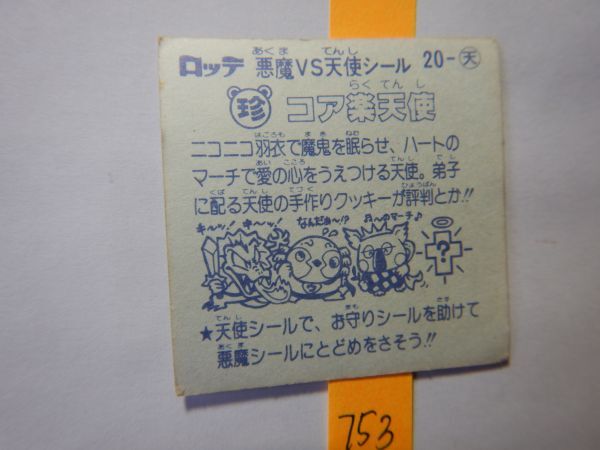 ロッテ 悪魔VS天使シール 20-天
あくま てんし
珍 コア楽天使
らくてんし
ニコニコ羽衣で魔鬼を眠らせ、ハートの
はごろも まき ねむ
マーチで愛の心をうえつける天使。弟子
あい こころ てんし でし
に配る天使の手作りクッキーが評判とか!!
くば てんし てづく ひょうばん
キ〜ッ! キ〜ッ! なんだぁ〜!? ♬〜のマーチ♪
?
★天使シールで、お守りシールを助けて
てんし まも たす
悪魔シールにとどめをさそう!!
あくま
753